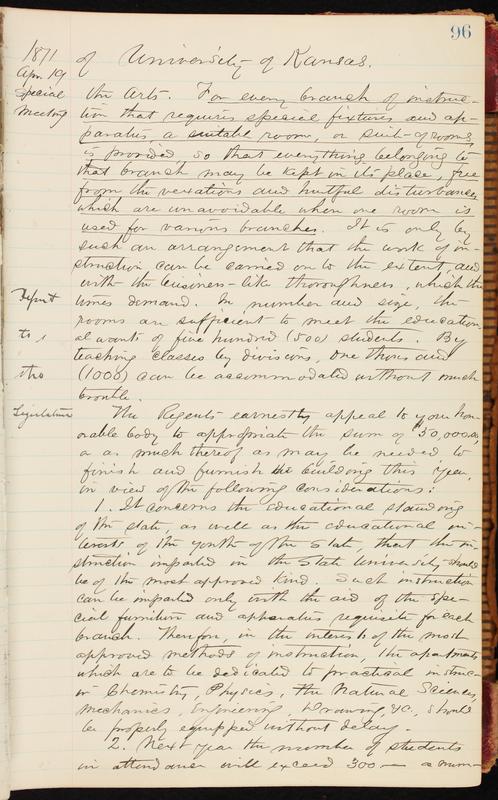 96
1871
Apr. 19
Special
Meeting
of University of Kansas.
the arts. For every branch of instruc-
tion that requires special fixtures and ap-
paratus a suitable room, or suit-of rooms,
is provided, so that everything belonging to
that branch may be kept in its place, free
from the vexations and hurtful disturbances
which are unavoidable when one room is
used for various branches. It is only by
such an arrangement that the work of in-
struction can be carried on to the extent, and
with the business-like thoroughness, which the
times demand. In number and size, the
rooms are sufficient to meet the education-
al wants of five hundred (500) students. By
teaching classes by divisions, one thousand
(1000) can be accommodated without much
trouble.
Report
to
the
Legislature
The Regents earnestly appeal to your hon-
orable body to appropriate the sum of $50,000.00,
or as much thereof as may be needed to
finish and furnish the building this year,
in view of the following considerations:
1. It concerns the educational standing
of the state, as well as the educational in-
terests of the youth of the State, that the in-
struction imparted in the State University should
be of the most approved kind. Such instruction
can be imparted only with the aid of the spe-
cial furniture and apparatus requisite for each
branch. Therefore, in the interests of the most
approved methods of instruction, the apartments
which are to be dedicated to practical instruc-
in Chemistry, Physics, the Natural Sciences,
Mechanics, Engineering, Drawing, &c., should
be properly equipped without delay.
2. Next year the number of students
in attendance will exceed 300 — a num-